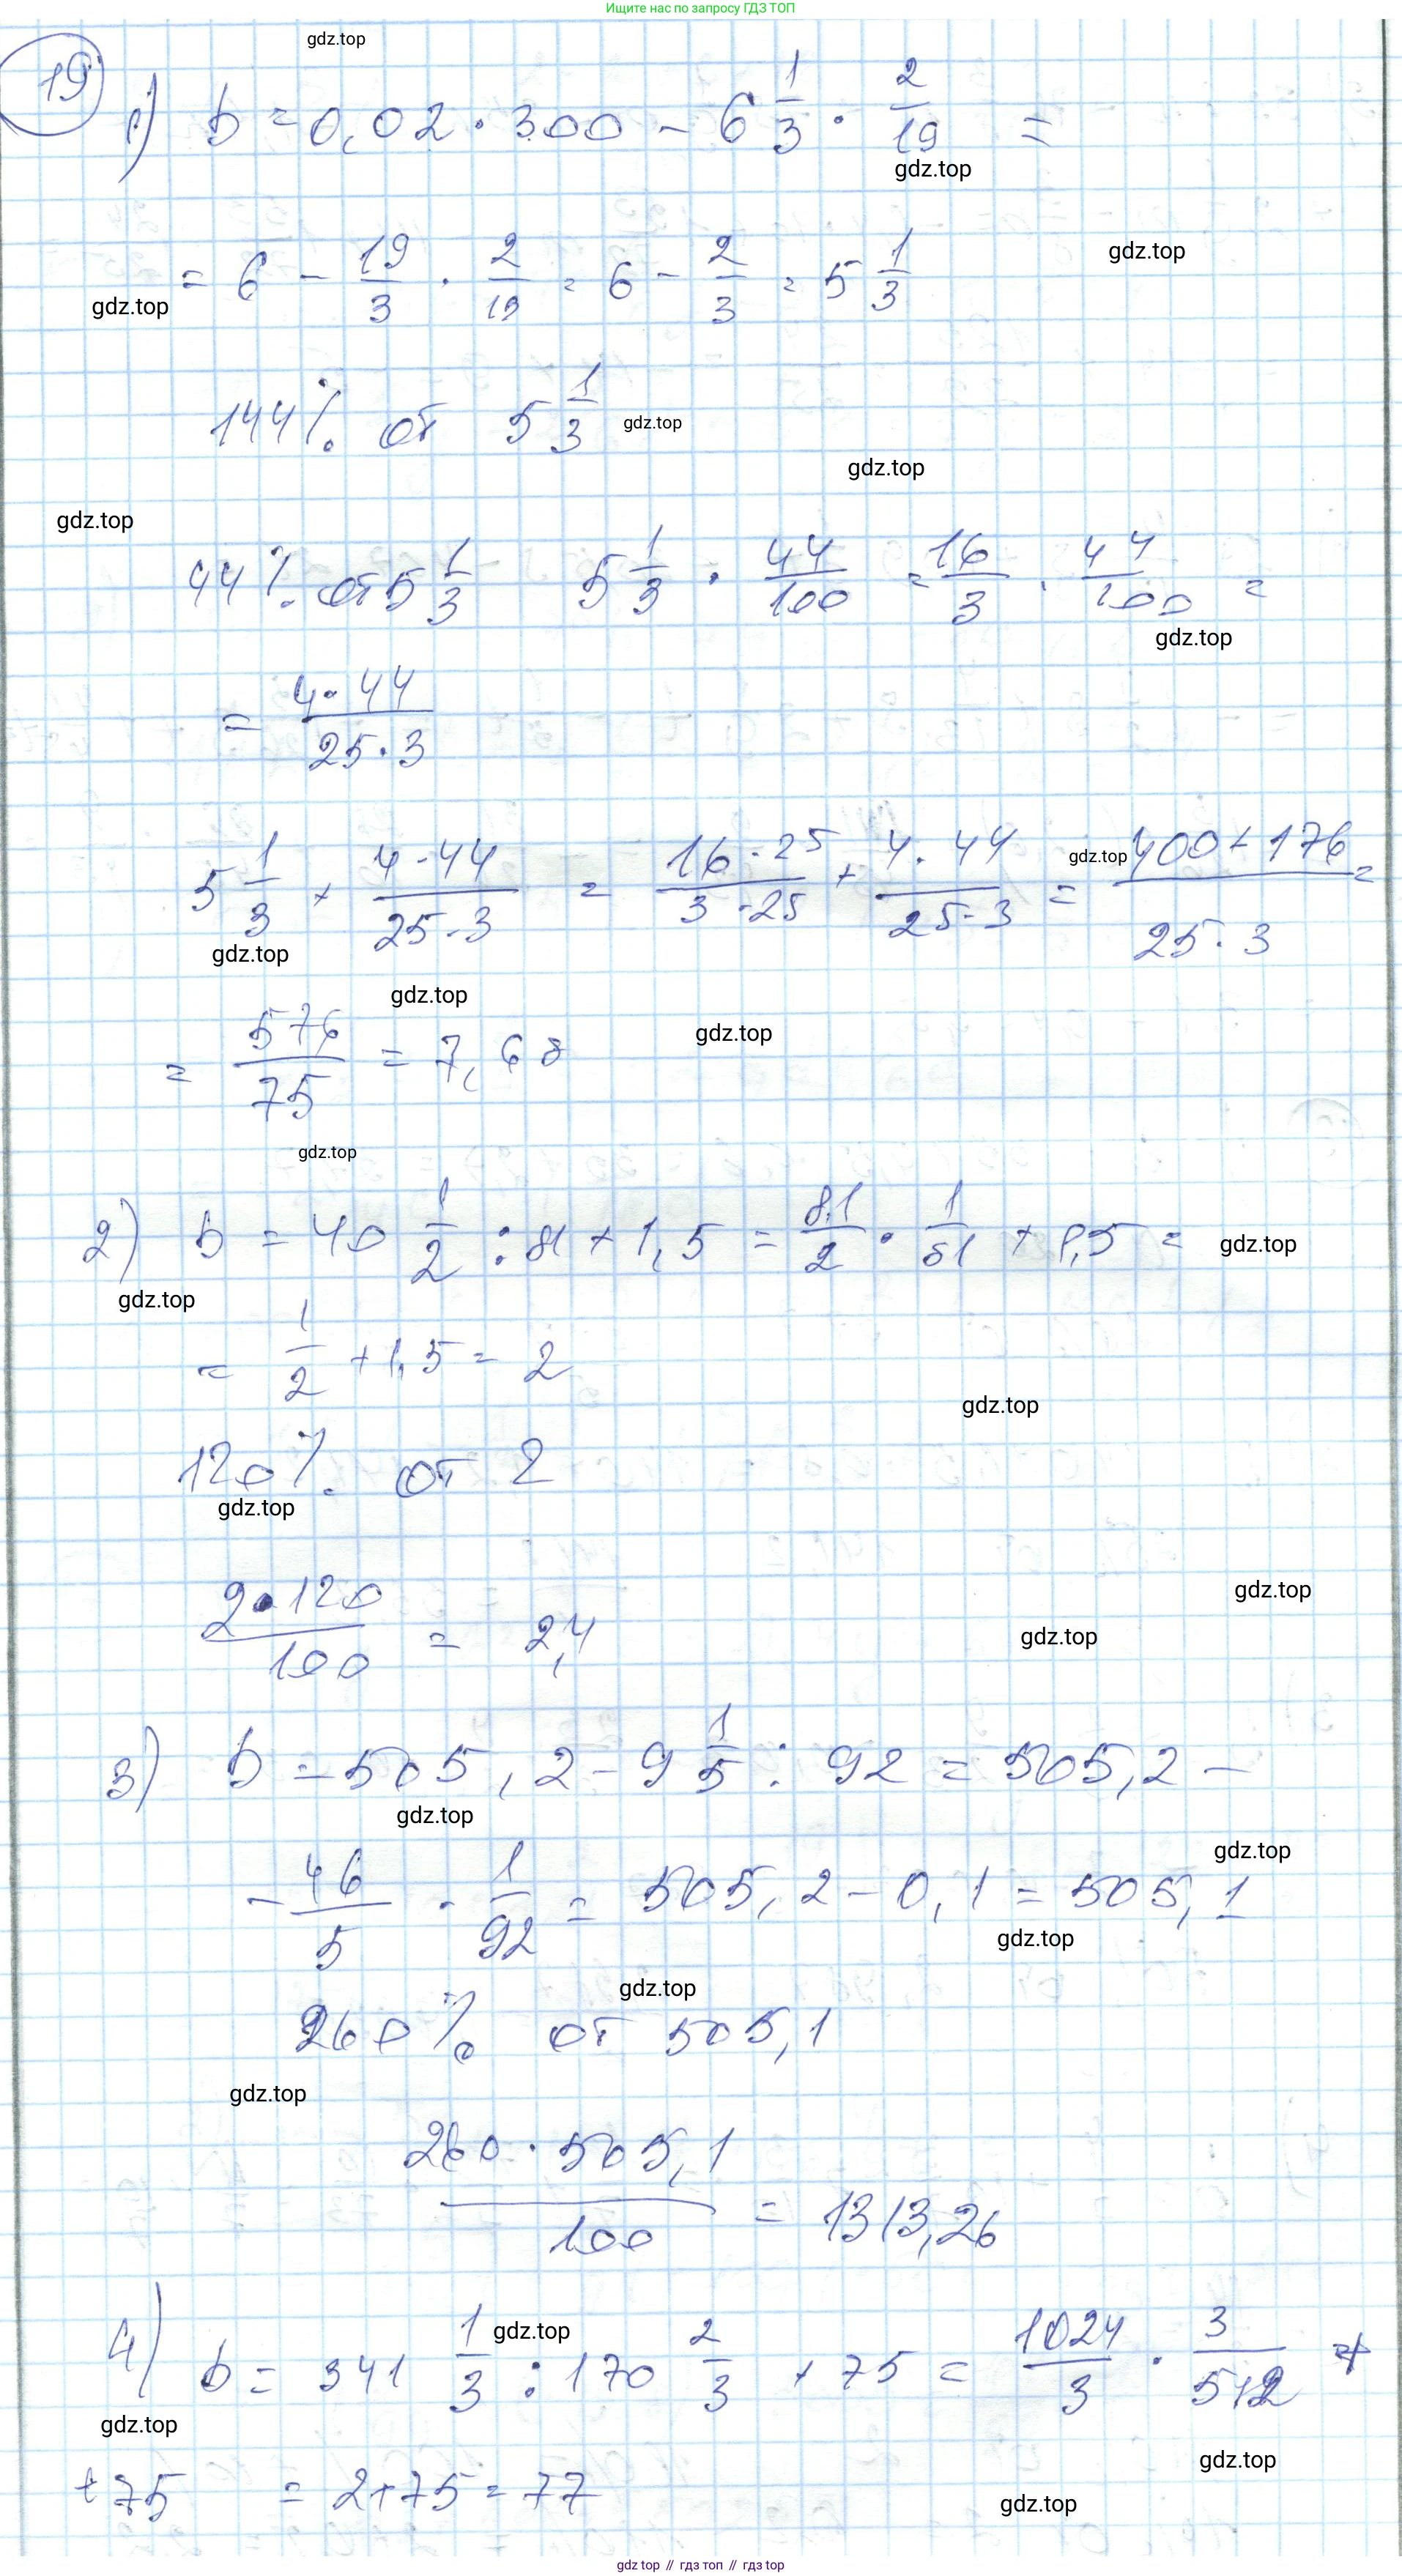 Ищите нас по запросу ГДЗ ТОП
gdz.top
19
1) b = 0,02 · 300 - 6 1/3 · 2/19 =
gdz.top
= 6 - 19/3 · 2/19 = 6 - 2/3 = 5 1/3
gdz.top
gdz.top
144% от 5 1/3
gdz.top
gdz.top
gdz.top
44% от 5 1/3 5 1/3 · 44/100 = 16/3 · 44/100 =
gdz.top
= 4·44/25·3
5 1/3 + 4·44/25·3 = 16·25/3·25 + 4·44/25·3 = 400+176/25·3 =
gdz.top
gdz.top
gdz.top
gdz.top
= 576/75 = 7,68
gdz.top
2) b = 40 1/2 : 81 + 1,5 = 81/2 · 1/81 + 1,5 =
gdz.top
gdz.top
= 1/2 + 1,5 = 2
gdz.top
120% от 2
gdz.top
gdz.top
2·120/100 = 2,4
gdz.top
3) b = 505,2 - 9 1/5 : 92 = 505,2 -
gdz.top
gdz.top
- 46/5 · 1/92 = 505,2 - 0,1 = 505,1
gdz.top
gdz.top
260% от 505,1
gdz.top
260 · 505,1/100 = 1313,26
gdz.top
4) b = 341 1/3 : 170 2/3 + 75 = 1024/3 · 3/512 +
gdz.top
gdz.top
+75 = 2+75 = 77
gdz.top
gdz.top // гдз топ // gdz top